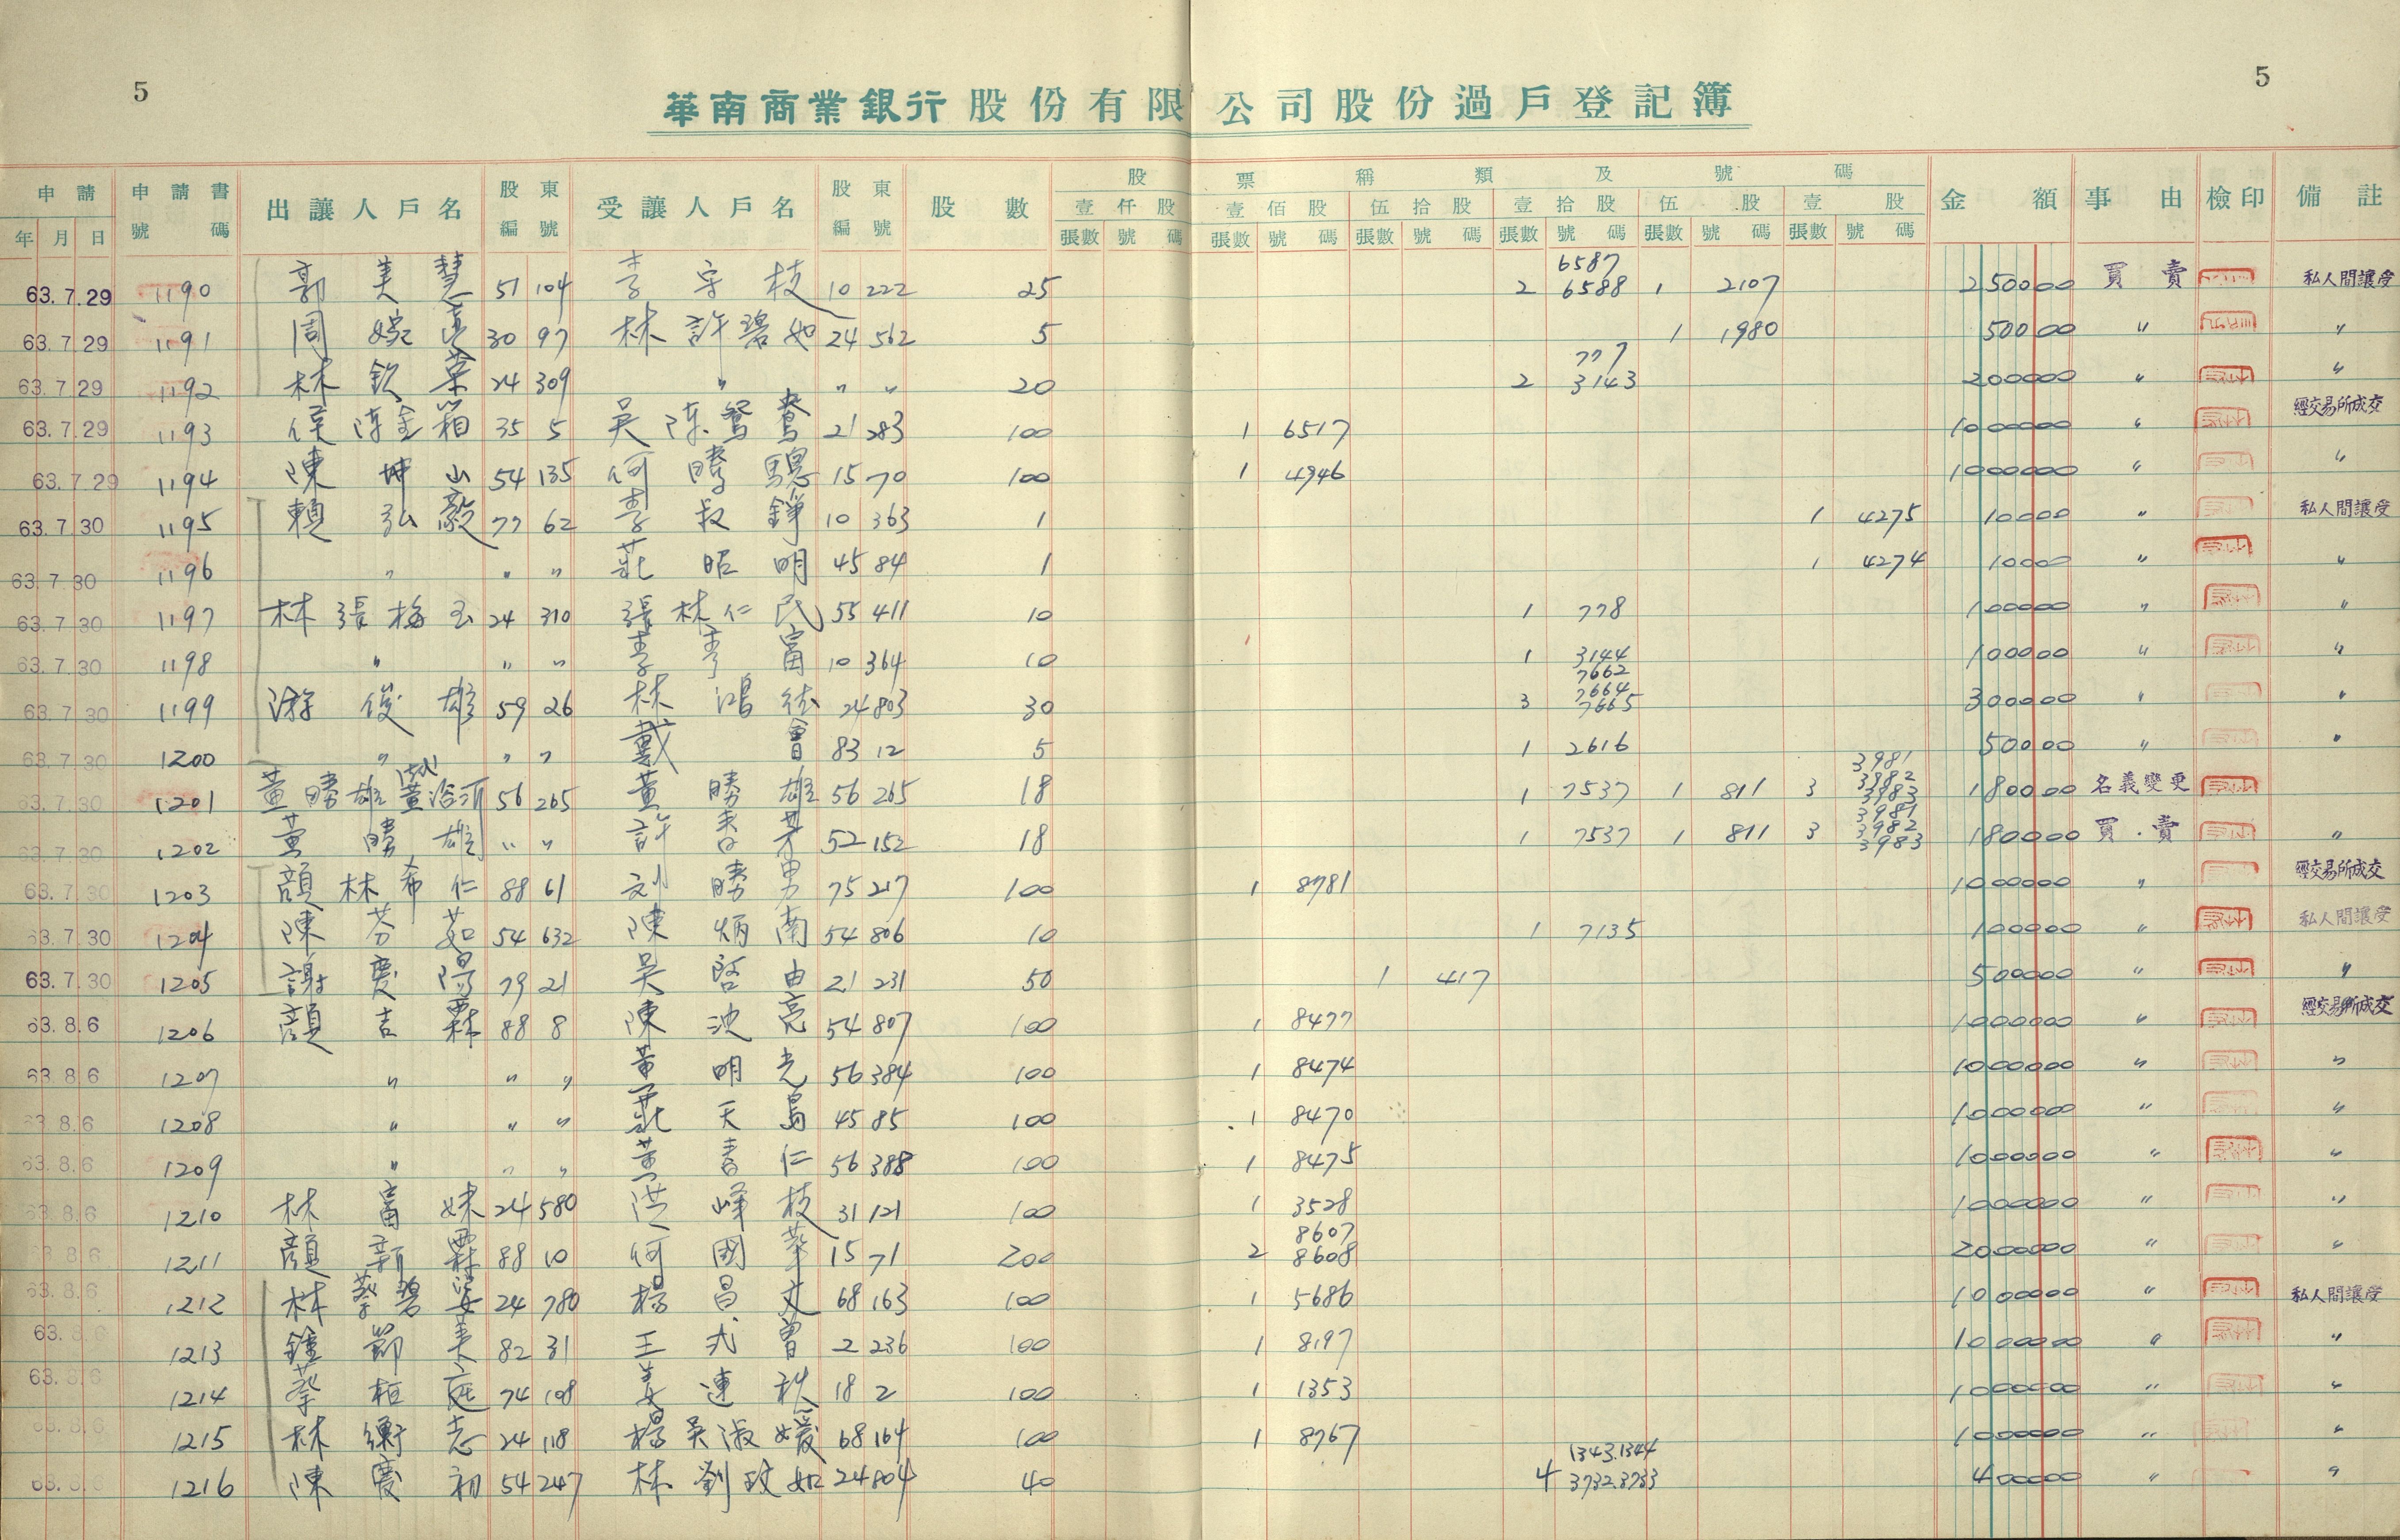 5
5
華南商業銀行股份有限公司股份過戶登記簿
申請 年 月 日 申請書號碼 出讓人戶名 股東編號 受讓人戶名 股東編號 股數 股票稱類及號碼 金額 事由 檢印 備註
壹仟股 壹佰股 伍拾股 壹拾股 伍股 壹股
張數 號碼 張數 號碼 張數 號碼 張數 號碼 張數 號碼 張數 號碼
63.7.29 1190 郭美慧 51 104 李守枝 10 222 25 2 6587 6588 1 2107 250000 買賣 私人間讓受
63.7.29 1191 周 30 97 林許碧如 24 562 5 1 1980 50000 〃 〃
63.7.29 1192 林欽榮 24 309 〃 〃 〃 20 2 777 3143 200000 〃 〃
63.7.29 1193 侯陳金箱 35 5 吳陳鴛鴦 21 283 100 1 6517 1000000 〃 經交易所成交
63.7.29 1194 陳坤山 54 135 何勝驄 15 70 100 1 4946 1000000 〃 〃
63.7.30 1195 賴弘毅 77 62 李叔錚 10 363 1 1 4275 10000 〃 私人間讓受
63.7.30 1196 〃 〃 〃 莊昭明 45 84 1 1 4274 10000 〃 〃
63.7.30 1197 林張梅玉 24 310 張林仁民 55 411 10 1 778 100000 〃 〃
63.7.30 1198 〃 〃 〃 李富 10 364 10 1 3144 100000 〃 〃
63.7.30 1199 游俊雄 59 26 林鴻 24 803 30 3 7662 7664 7665 300000 〃 〃
63.7.30 1200 〃 〃 〃 戴會 83 12 5 1 2616 50000 〃 〃
63.7.30 1201 黃勝雄 黃浴沂 56 265 黃勝雄 56 265 18 1 7537 1 811 3 3981 3982 3983 180000 名義變更
63.7.30 1202 黃勝雄 〃 〃 許春芽 52 152 18 1 7537 1 811 3 3981 3982 3983 180000 買賣 〃
63.7.30 1203 顏林希仁 88 61 刘勝男 75 217 100 1 8781 1000000 〃 經交易所成交
63.7.30 1204 陳芬茹 54 632 陳炳南 54 806 10 1 7135 100000 〃 私人間讓受
63.7.30 1205 謝慶陽 79 21 吳啓由 21 231 50 1 417 500000 〃 〃
63.8.6 1206 顏吉霖 88 8 陳池亮 54 807 100 1 8477 1000000 〃 經交易所成交
63.8.6 1207 〃 〃 〃 黃明光 56 384 100 1 8474 1000000 〃 〃
63.8.6 1208 〃 〃 〃 莊天島 45 85 100 1 8470 1000000 〃 〃
63.8.6 1209 〃 〃 〃 黃春仁 56 388 100 1 8475 1000000 〃 〃
63.8.6 1210 林富妹 24 580 洪峰枝 31 121 100 1 3528 1000000 〃 〃
63.8.6 1211 顏新霖 88 10 何國華 15 71 200 2 8607 8608 2000000 〃 〃
63.8.6 1212 林蔡碧姿 24 780 楊昌文 68 163 100 1 5686 1000000 〃 私人間讓受
63.8.6 1213 鍾節美 82 31 王式曾 2 236 100 1 8197 1000000 〃 〃
63.8.6 1214 蔡桓庭 74 108 姜連秋 18 2 100 1 1353 1000000 〃 〃
63.8.6 1215 林衡志 24 118 楊吳淑媛 68 164 100 1 8767 1000000 〃 〃
63.8.6 1216 陳慶初 54 247 林劉玟如 24 804 40 4 1343.1344 3732.3733 400000 〃 〃